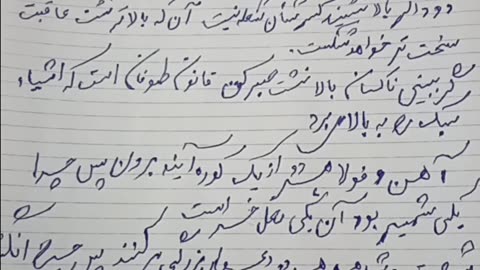 دود اگر بالا نشیند کسر شأن شعله نیست آن که بالاتر نشست عاقبت
سخت تر خواهد شکست.
گر ببینی ناکسان بالا نشست صبر کن قانون طوفان است که اشیاء
سبک را به بالا می برد
آهن و فولاد هر دو از یک کوره آیند برون پس چرا
یکی شمشیر بود آن یکی نعل خر است
بزرگی کنند